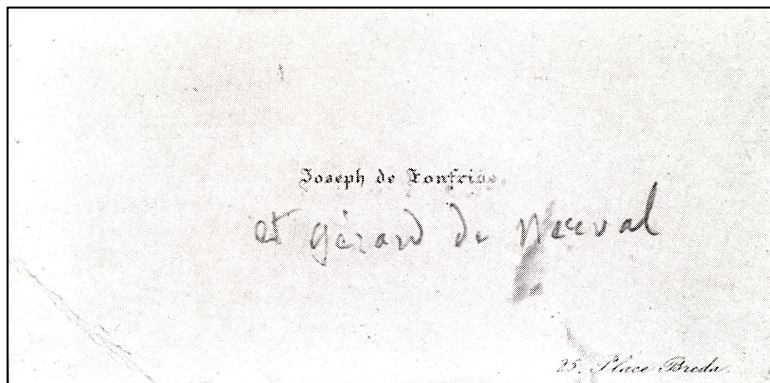 Joseph de Fonfride
et gérard de Nerval
25. Place Breda.